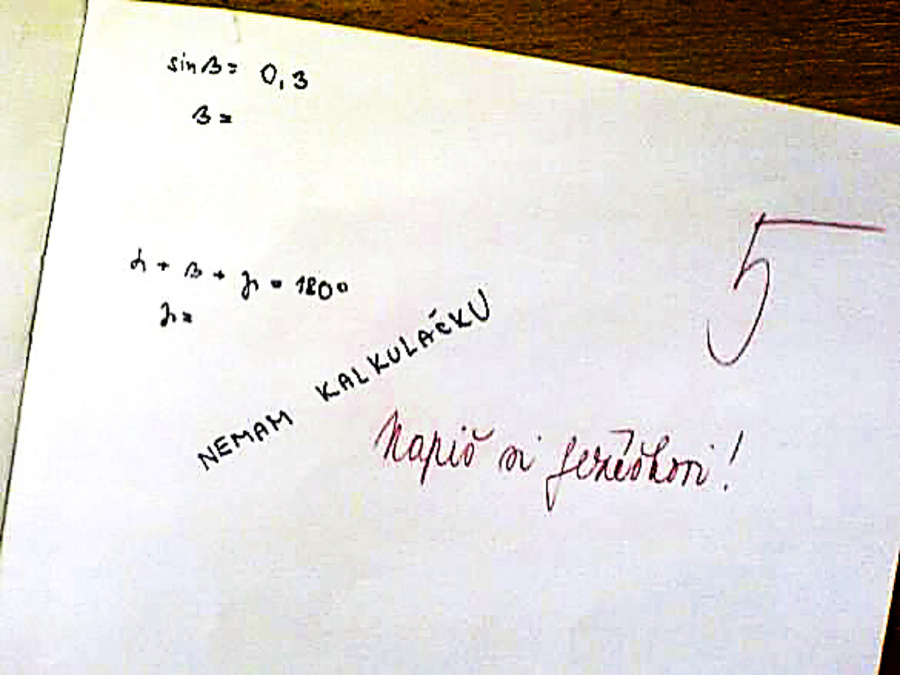 sin β = 0,3
β =
5
α + β + γ = 180°
γ =
NEMAM KALKULAČKU
Napiš si ježíškovi!